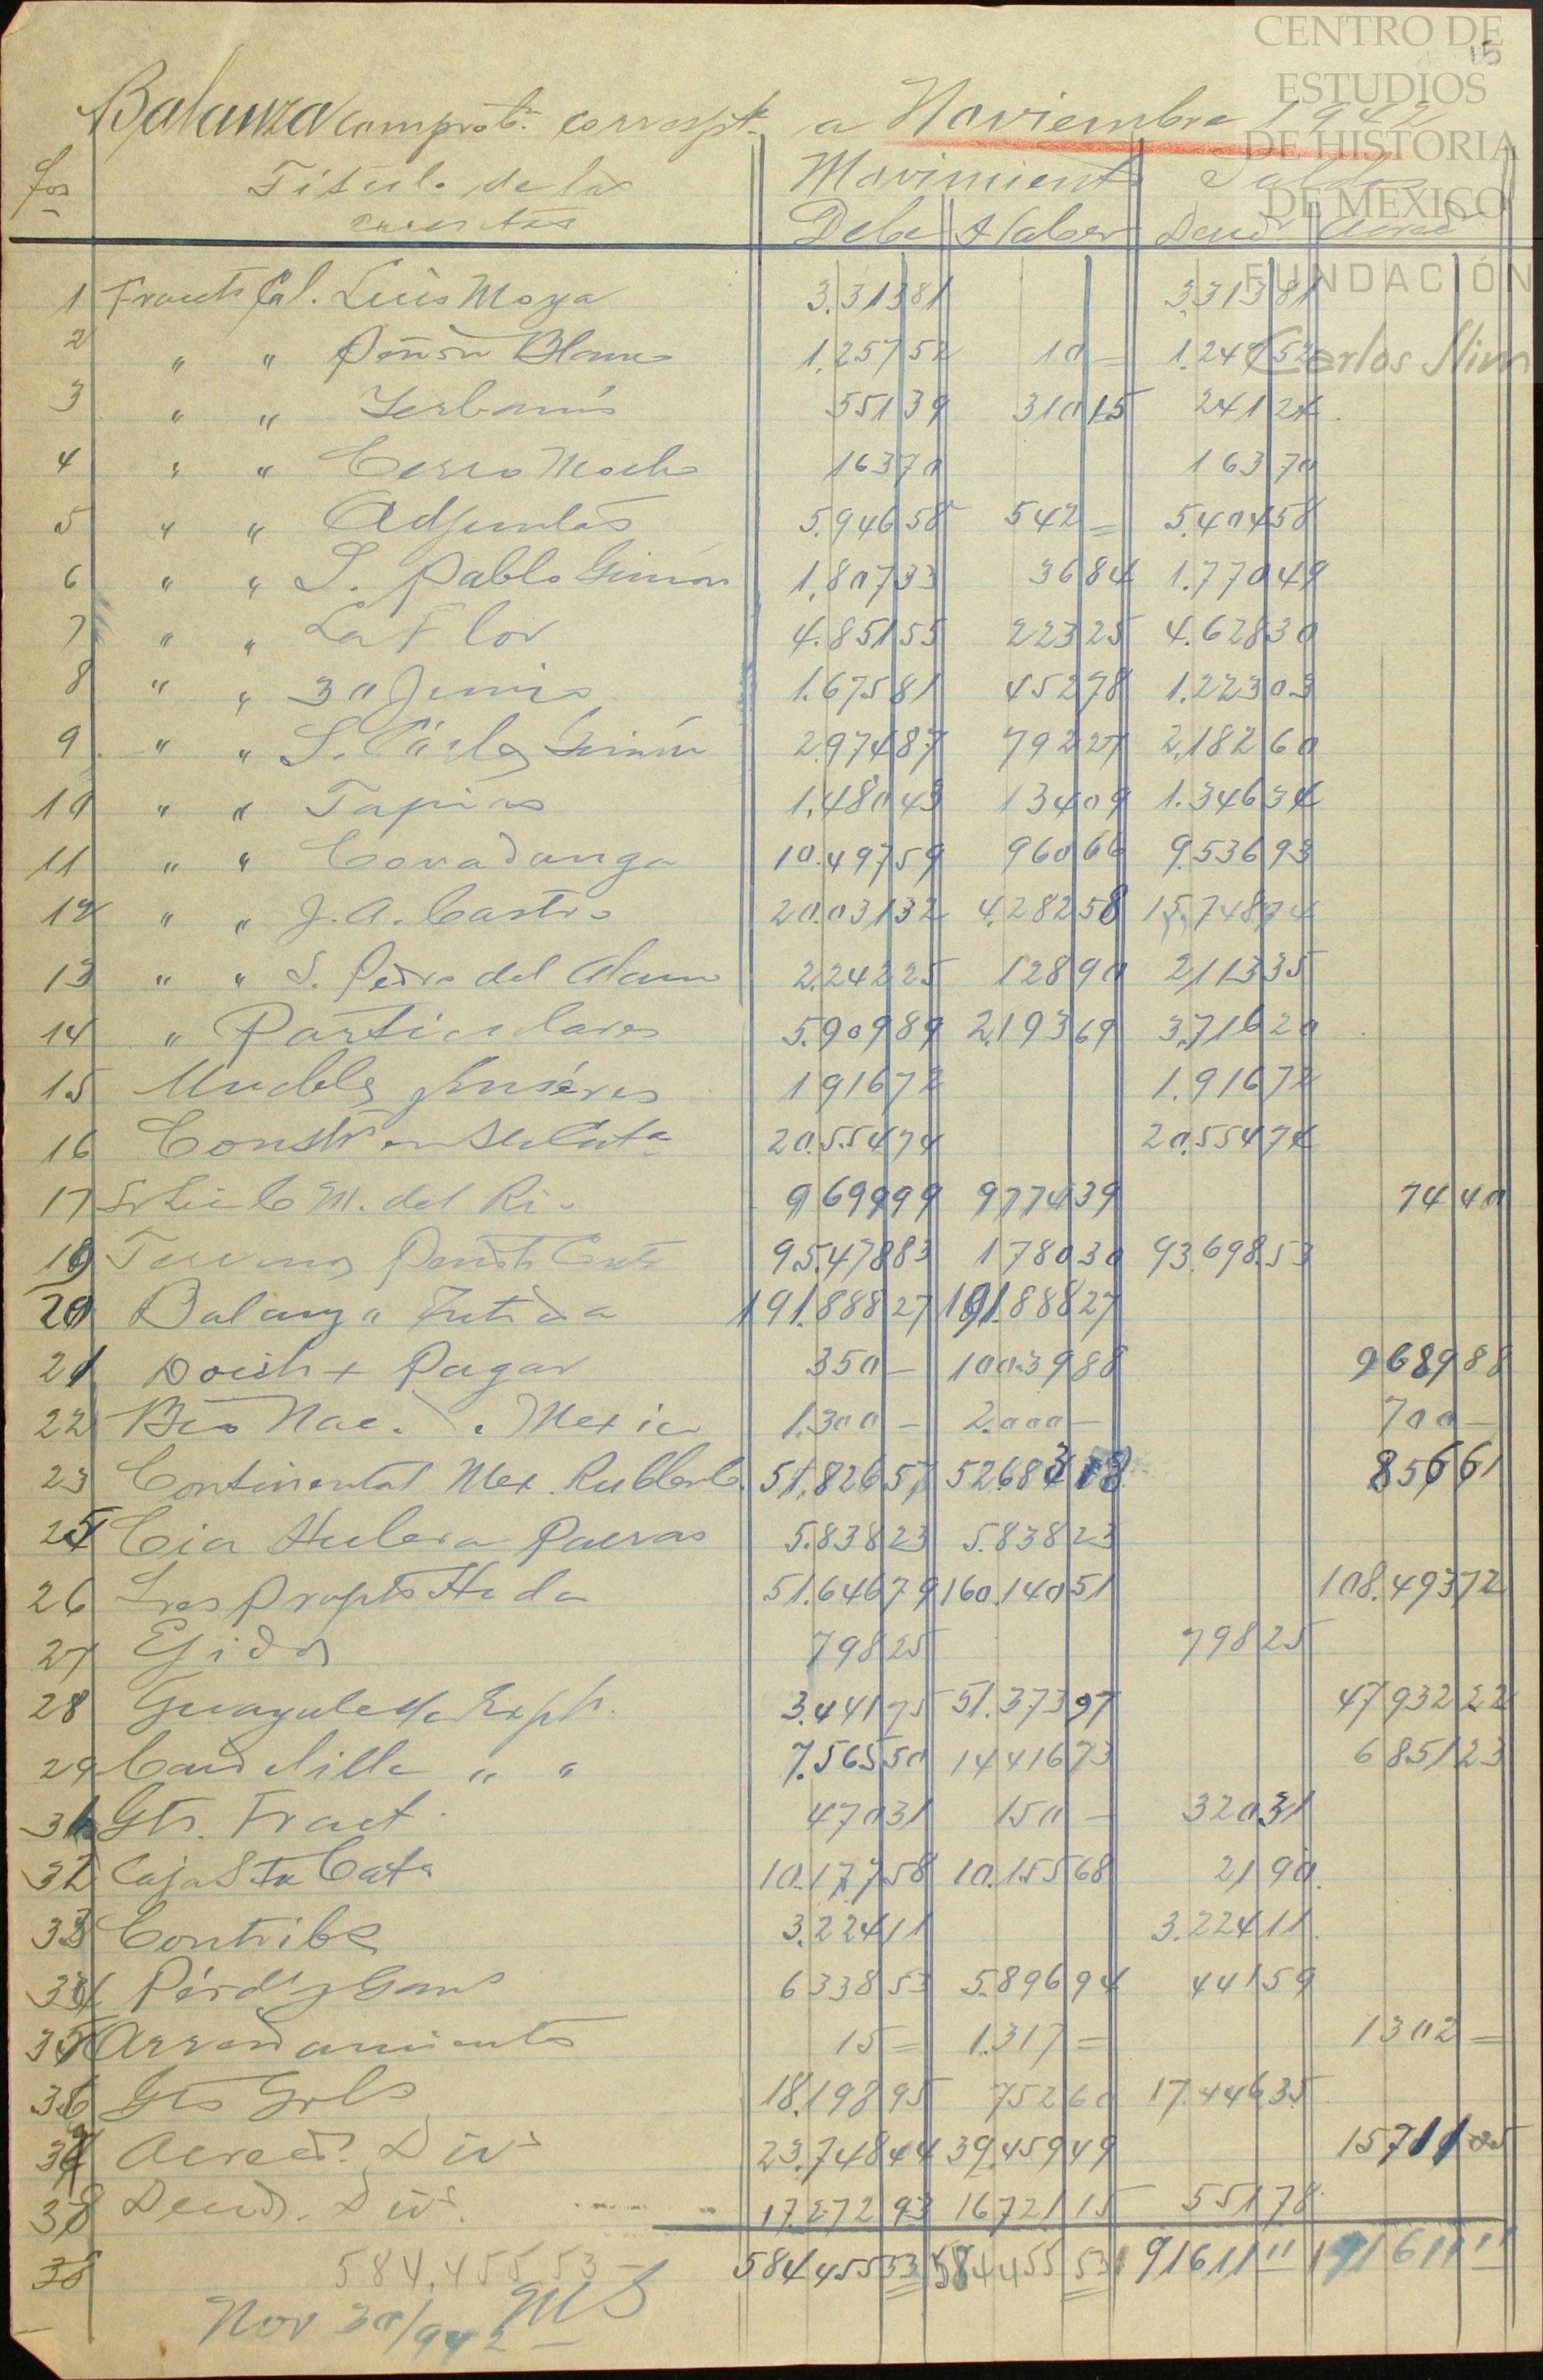 CENTRO DE
15
ESTUDIOS
Balanza comprobn. correspte. a Noviembre 1942
DE HISTORIA
fos Titulo de las Movimiento Saldos
DE MEXICO
cuentas Debe Haber Deud. Acreed
FUNDACIÓN
1 Fracts Cal. Luis Moya 3.313 81 3.313 81
2 " " Peñón Blanco 1.257 52 10 = 1.247 52
Carlos Slim
3 " " Yerbanís 551 39 310 15 241 24
4 " " Cerro Mocho 163 70 163 70
5 " " Adjuntas 5.946 58 542 = 5.404 58
6 " " S. Pablo Gimón 1.807 33 36 84 1.770 49
7 " " La Flor 4.851 55 223 25 4.628 30
8 " " 30 Junio 1.675 81 452 78 1.223 03
9 " " S. Carlos Gimón 2.974 87 792 27 2.182 60
10 " " Tapias 1.480 43 134 09 1.346 34
11 " " Covadonga 10.497 59 960 66 9.536 93
12 " " J.A. Castro 20.031 32 4.282 58 15.748 74
13 " " S. Pedro del Alamo 2.242 25 128 90 2.113 35
14 " Particulares 5.909 89 2.193 69 3.716 20
15 Muebles y Enséres 1 916 72 1.916 72
16 Constn en Sta Cata 20.554 74 20.554 74
17 Sr Luis C M. del Rio 9 699 99 9 774 39 74 40
19 Terrenos Pendts 95.478 83 1 780 30 93.698.53
20 Balanza Entrada 191.888 27 191.888 27
21 Docts x Pagar 350 = 10 039 88 9 689 88
22 Bco Nac. d. Mexico 1.300 = 2.000 = 700 =
23 Continental Mex. Rubber C. 51.826 57 52.683 18 856 61
25 Cia Hulera Parras 5.838 23 5.838 23
26 Sres Propts Hda 51.646 79 160.140 51 108.493 72
27 Ejidos 798 25 798 25
28 Guayule Cta Explt. 3.441 75 51.373 97 47 932 22
29 Candelilla " " 7.565 50 14 416 73 6 851 23
31 Gts. Fract. 470 31 150 = 320 31
32 Caja Sta Cata 10.177 58 10.155 68 21 90
33 Contribs 3.224 11 3.224 11
34 Pérds y Gans 6 338 53 5.896 94 441 59
35 Arrendamientos 15 = 1.317 = 1302 =
36 Gts Grls 18.198 95 752 60 17.446 35
37 Acreeds. Divs 23.748 44 39.459 49 15 711 05
38 Deuds. Divs. 17.272 93 16 721 15 551 78
38 584.455 53 584 455 53 584 455 53 191611 11 191611 11
Nov 30/942 MS